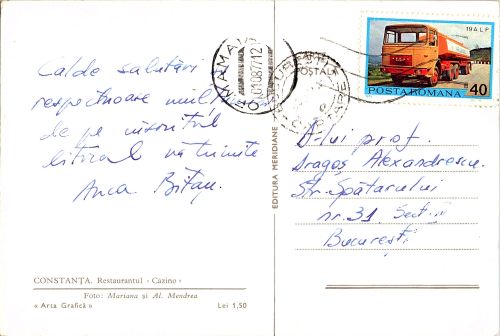 Calde salutări
respectuoase
de pe însoritul
litoral vă trimite
Anca
CONSTANȚA. Restaurantul « Cazino »
Foto: Mariana și Al. Mendrea
« Arta Grafică »
Lei 1,50
EDITURA MERIDIANE
MAMAIA
19 A L P
POSTA ROMANA
40
D-lui prof.
Dragoș Alexandrescu.
Str. Spătarului
nr. 31. Sect.
București